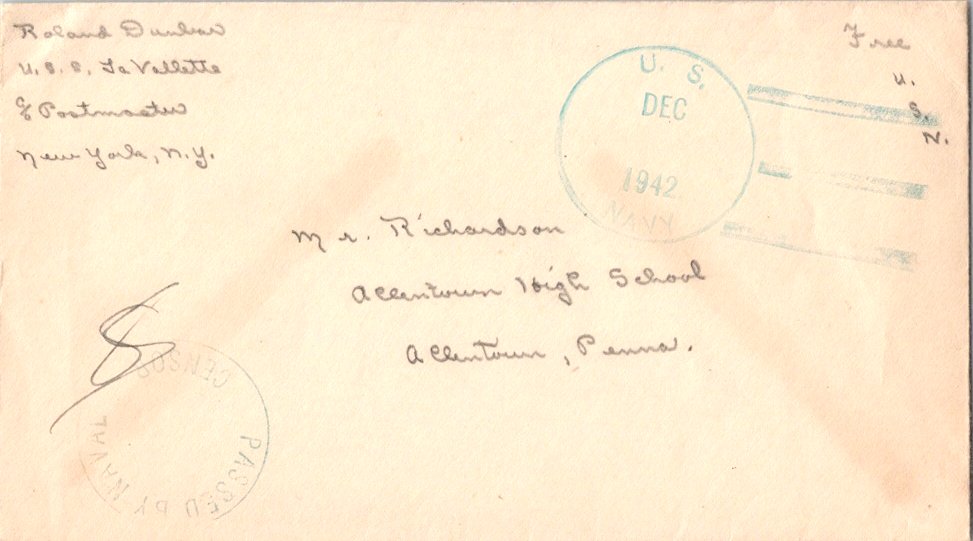 Roland Dunbar
U.S.S. La Vallette
c/o Postmaster
New York, N.Y.
Free
U.
S.
N.
U. S.
DEC
1942
NAVY
Mr. Richardson
Allentown High School
Allentown, Penna.
PASSED BY NAVAL CENSOR